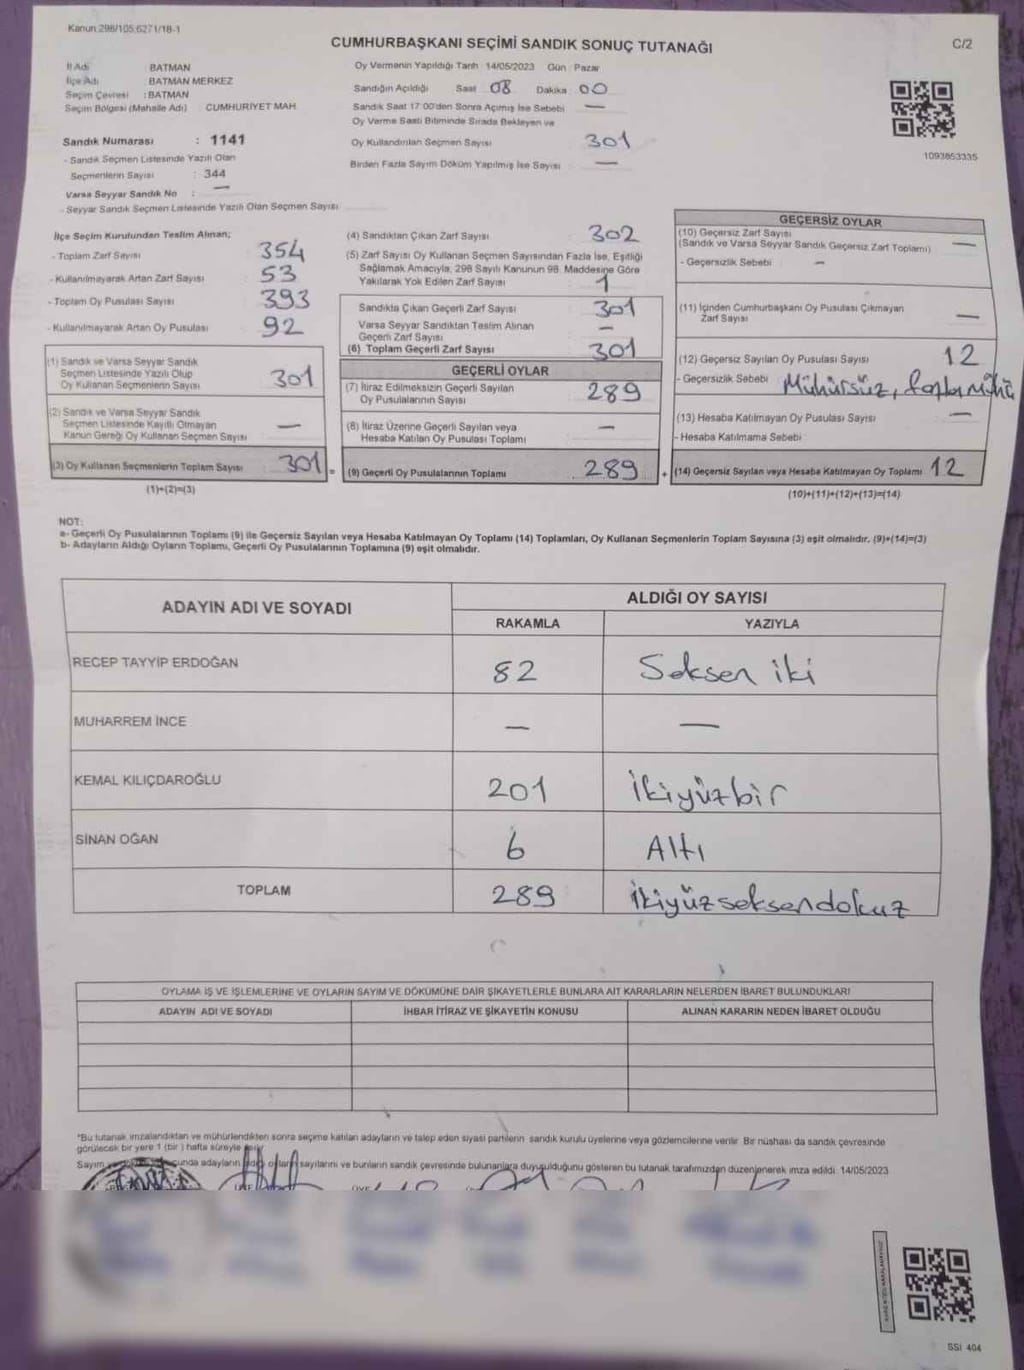 Kanun 298/105,6271/18-1
CUMHURBAŞKANI SEÇİMİ SANDIK SONUÇ TUTANAĞI
C/2
İl Adı : BATMAN
İlçe Adı : BATMAN MERKEZ
Seçim Çevresi : BATMAN
Seçim Bölgesi (Mahalle Adı) : CUMHURİYET MAH
Sandık Numarası : 1141
- Sandık Seçmen Listesinde Yazılı Olan
Seçmenlerin Sayısı : 344
Varsa Seyyar Sandık No : —
- Seyyar Sandık Seçmen Listesinde Yazılı Olan Seçmen Sayısı
Oy Vermenin Yapıldığı Tarih 14/05/2023 Gün : Pazar
Sandığın Açıldığı Saat 08 Dakika : 00
Sandık Saat 17:00'den Sonra Açımış İse Sebebi —
Oy Verme Saati Bitiminde Sırada Bekleyen ve
Oy Kullandırılan Seçmen Sayısı 301
Birden Fazla Sayım Döküm Yapılmış İse Sayısı —
1093853335
İlçe Seçim Kurulundan Teslim Alınan;
- Toplam Zarf Sayısı 354
- Kullanılmayarak Artan Zarf Sayısı 53
- Toplam Oy Pusulası Sayısı 393
- Kullanılmayarak Artan Oy Pusulası 92
(1) Sandık ve Varsa Seyyar Sandık
Seçmen Listesinde Yazılı Olup
Oy Kullanan Seçmenlerin Sayısı 301
(2) Sandık ve Varsa Seyyar Sandık
Seçmen Listesinde Kayıtlı Olmayan
Kanun Gereği Oy Kullanan Seçmen Sayısı —
(3) Oy Kullanan Seçmenlerin Toplam Sayısı 301 =
(1)+(2)=(3)
(4) Sandıktan Çıkan Zarf Sayısı 302
(5) Zarf Sayısı Oy Kullanan Seçmen Sayısından Fazla İse, Eşitliği
Sağlamak Amacıyla, 298 Sayılı Kanunun 98. Maddesine Göre
Yakılarak Yok Edilen Zarf Sayısı 1
Sandıkta Çıkan Geçerli Zarf Sayısı 301
Varsa Seyyar Sandıktan Teslim Alınan
Geçerli Zarf Sayısı —
(6) Toplam Geçerli Zarf Sayısı 301
GEÇERLİ OYLAR
(7) İtiraz Edilmeksizin Geçerli Sayılan
Oy Pusulalarının Sayısı 289
(8) İtiraz Üzerine Geçerli Sayılan veya
Hesaba Katılan Oy Pusulası Toplamı —
(9) Geçerli Oy Pusulalarının Toplamı 289 +
GEÇERSİZ OYLAR
(10) Geçersiz Zarf Sayısı
(Sandık ve Varsa Seyyar Sandık Geçersiz Zarf Toplamı) —
- Geçersizlik Sebebi : —
(11) İçinden Cumhurbaşkanı Oy Pusulası Çıkmayan
Zarf Sayısı —
(12) Geçersiz Sayılan Oy Pusulası Sayısı 12
- Geçersizlik Sebebi Mühürsüz, fazla
(13) Hesaba Katılmayan Oy Pusulası Sayısı —
- Hesaba Katılmama Sebebi
(14) Geçersiz Sayılan veya Hesaba Katılmayan Oy Toplamı 12
(10)+(11)+(12)+(13)=(14)
NOT:
a- Geçerli Oy Pusulalarının Toplamı (9) ile Geçersiz Sayılan veya Hesaba Katılmayan Oy Toplamı (14) Toplamları, Oy Kullanan Seçmenlerin Toplam Sayısına (3) eşit olmalıdır. (9)+(14)=(3)
b- Adayların Aldığı Oyların Toplamı, Geçerli Oy Pusulalarının Toplamına (9) eşit olmalıdır.
ADAYIN ADI VE SOYADI
ALDIĞI OY SAYISI
RAKAMLA YAZIYLA
RECEP TAYYİP ERDOĞAN 82 Seksen iki
MUHARREM İNCE — —
KEMAL KILIÇDAROĞLU 201 ikiyüzbir
SİNAN OĞAN 6 Altı
TOPLAM 289 ikiyüzseksendokuz
OYLAMA İŞ VE İŞLEMLERİNE VE OYLARIN SAYIM VE DÖKÜMÜNE DAİR ŞİKAYETLERLE BUNLARA AİT KARARLARIN NELERDEN İBARET BULUNDUKLARI
ADAYIN ADI VE SOYADI İHBAR İTİRAZ VE ŞİKAYETİN KONUSU ALINAN KARARIN NEDEN İBARET OLDUĞU
*Bu tutanak imzalandıktan ve mühürlendikten sonra seçime katılan adayların ve talep eden siyasi partilerin sandık kurulu üyelerine veya gözlemcilerine verilir. Bir nüshası da sandık çevresinde
görülecek bir yere 1 (bir) hafta süreyle
Sayım adayların sayılarını ve bunların sandık çevresinde bulunanlara duyurulduğunu gösteren bu tutanak tarafımızdan düzenlenerek imza edildi. 14/05/2023
SSI 404